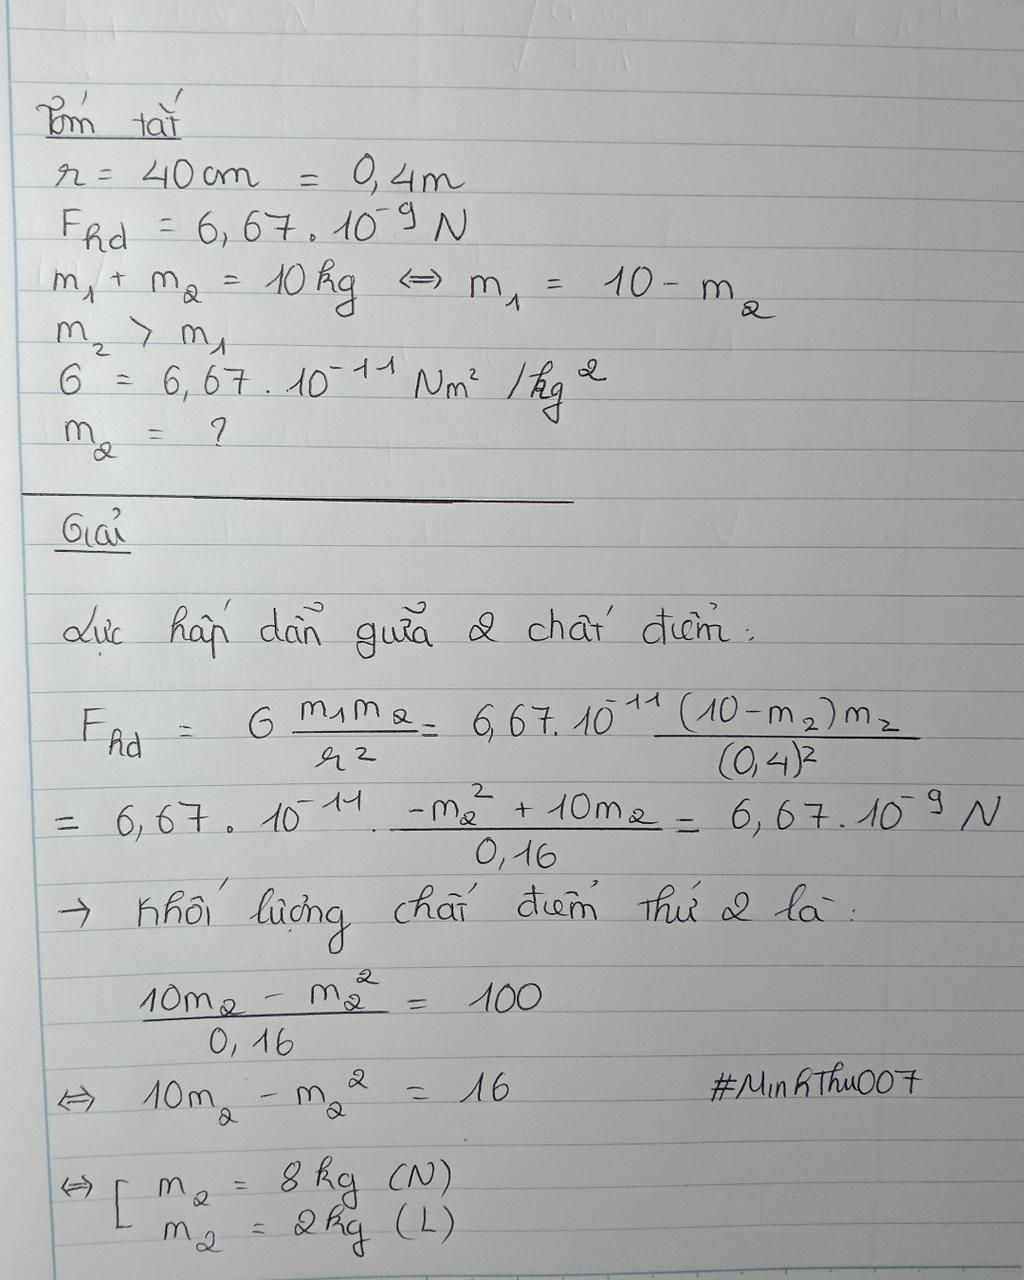 Tóm tắt
r = 40cm = 0,4m
Fhd = 6,67.10⁻⁹ N
m₁ + m₂ = 10kg ⇔ m₁ = 10 - m₂
m₂ > m₁
G = 6,67.10⁻¹¹ Nm²/kg²
m₂ = ?
Giải
Lực hấp dẫn giữa 2 chất điểm:
Fhd = G m₁m₂/r² = 6,67.10⁻¹¹ (10-m₂)m₂/(0,4)²
= 6,67.10⁻¹¹ . -m₂² + 10m₂/0,16 = 6,67.10⁻⁹ N
→ Khối lượng chất điểm thứ 2 là:
10m₂ - m₂²/0,16 = 100
⇔ 10m₂ - m₂² = 16 #MinhThu007
⇔ [ m₂ = 8kg (N)
m₂ = 2kg (L)